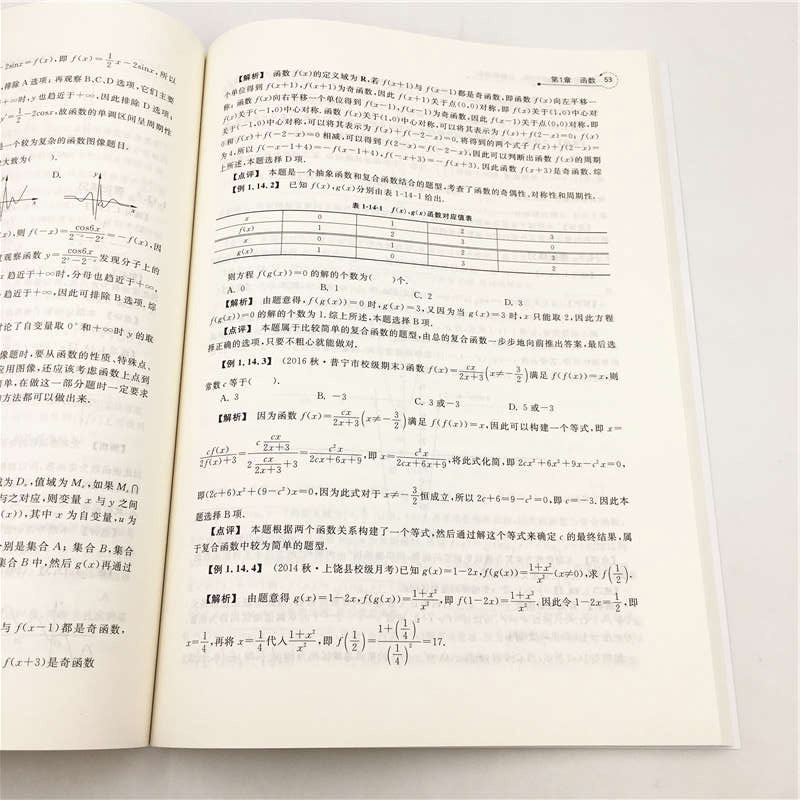 -2sinx=f(x),即 f(x)=1/2 x-2sinx,所以
,排除A选项;再观察B、C、D选项,它们主要
+∞时,y也趋近于+∞,因此排除 D 选项;
y′=1/2-2cosx,故函数的单调区间呈周期性
是一个较为复杂的函数图像题目.
大致为( ).
D.
x),则 f(-x)=cos6x/(2⁻ˣ-2ˣ)=-f(x),因
观察函数 y=cos6x/(2ˣ-2⁻ˣ) 发现分子上的
x 趋近于+∞时,分母也趋近于+∞,
趋近于+∞,因此可排除 B 选项.综
讨论了自变量取 0⁺和+∞时 y 的取
像题时,要从函数的性质、特殊点、
应用图像,还应该考虑函数上点到
单,在做这一部分题时一定要求
方法都可以做出来.
为 Dᵤ,值域为 Mᵤ,如果 Mᵤ∩
与之对应,则变量 x 与 y 之间
(x)),其中 x 为自变量,u 为
别是集合 A;集合 B,集合
集合 B 中,然后 g(x)再通过
与 f(x-1)都是奇函数,
f(x+3)是奇函数
第1章 函数 53
【解析】 函数 f(x)的定义域为 R,若 f(x+1)与 f(x-1)都是奇函数,即函数 f(x)向左平移一
个单位得到 f(x+1),f(x+1)为奇函数,因此 f(x+1)关于点(0,0)对称,即 f(x)关于(1,0)中心对
称;函数 f(x)向右平移一个单位得到 f(x-1),f(x-1)为奇函数,因此 f(x-1)关于点(0,0)对称,即
f(x)关于(-1,0)中心对称.函数 f(x)关于(1,0)中心对称,可以将其表示为 f(x)+f(2-x)=0;f(x)
关于(-1,0)中心对称,可以将其表示为 f(x)+f(-2-x)=0.将得到的两个式子 f(x)+f(2-x)=
0 和 f(x)+f(-2-x)=0 相减,可以得到 f(2-x)=f(-2-x),因此可以判断出函数 f(x)的周期
为 4,所以 f(-x-1+4)=-f(x-1+4),f(-x+3)=-f(x+3).因此函数 f(x+3)是奇函数.综
上所述,本题选择 D 项.
【点评】 本题是一个抽象函数和复合函数结合的题型,考查了函数的奇偶性、对称性和周期性.
【例 1.14.2】 已知 f(x),g(x)分别由表 1-14-1 给出.
表 1-14-1 f(x),g(x)函数对应值表
x 0 1 2 3
f(x) 1 2 3 0
x 0 1 2 3
g(x) 1 0 3 2
则方程 f(g(x))=0 的解的个数为( )个.
A. 0 B. 1 C. 2 D. 3
【解析】 由题意得,f(g(x))=0 时,g(x)=3,又因为当 g(x)=3 时,x 只能取 2,因此方程
f(g(x))=0 的解的个数为 1.综上所述,本题选择 B 项.
【点评】 本题属于比较简单的复合函数的题型,由总的复合函数一步步地向前推出答案,最后选
择正确的选项,只要不粗心就能做对.
【例 1.14.3】 (2016 秋·普宁市校级期末)函数 f(x)=cx/(2x+3)(x≠-3/2)满足 f(f(x))=x,则
常数 c 等于( ).
A. 3 B. -3 C. 3 或-3 D. 5 或-3
【解析】 因为函数 f(x)=cx/(2x+3)(x≠-3/2)满足 f(f(x))=x,因此可以构建一个等式,即 x=
cf(x)/(2f(x)+3)=(c·cx/(2x+3))/(2·cx/(2x+3)+3)=c²x/(2cx+6x+9),即 x=c²x/(2cx+6x+9),将此式化简,即 2cx²+6x²+9x-c²x=0,
即(2c+6)x²+(9-c²)x=0,因为此式对于 x≠-3/2恒成立,所以 2c+6=9-c²=0,即 c=-3.因此本
题选择 B 项.
【点评】 本题根据两个函数关系构建了一个等式,然后通过解这个等式来确定 c 的最终结果,属
于复合函数中较为简单的题型.
【例 1.14.4】 (2014 秋·上饶县校级月考)已知 g(x)=1-2x,f(g(x))=(1+x²)/x²(x≠0),求 f(1/2).
【解析】 由题意得 g(x)=1-2x,f(g(x))=(1+x²)/x²,即 f(1-2x)=(1+x²)/x².因此令 1-2x=1/2,即
x=1/4,再将 x=1/4代入(1+x²)/x²,即 f(1/2)=(1+(1/4)²)/(1/4)²=17.